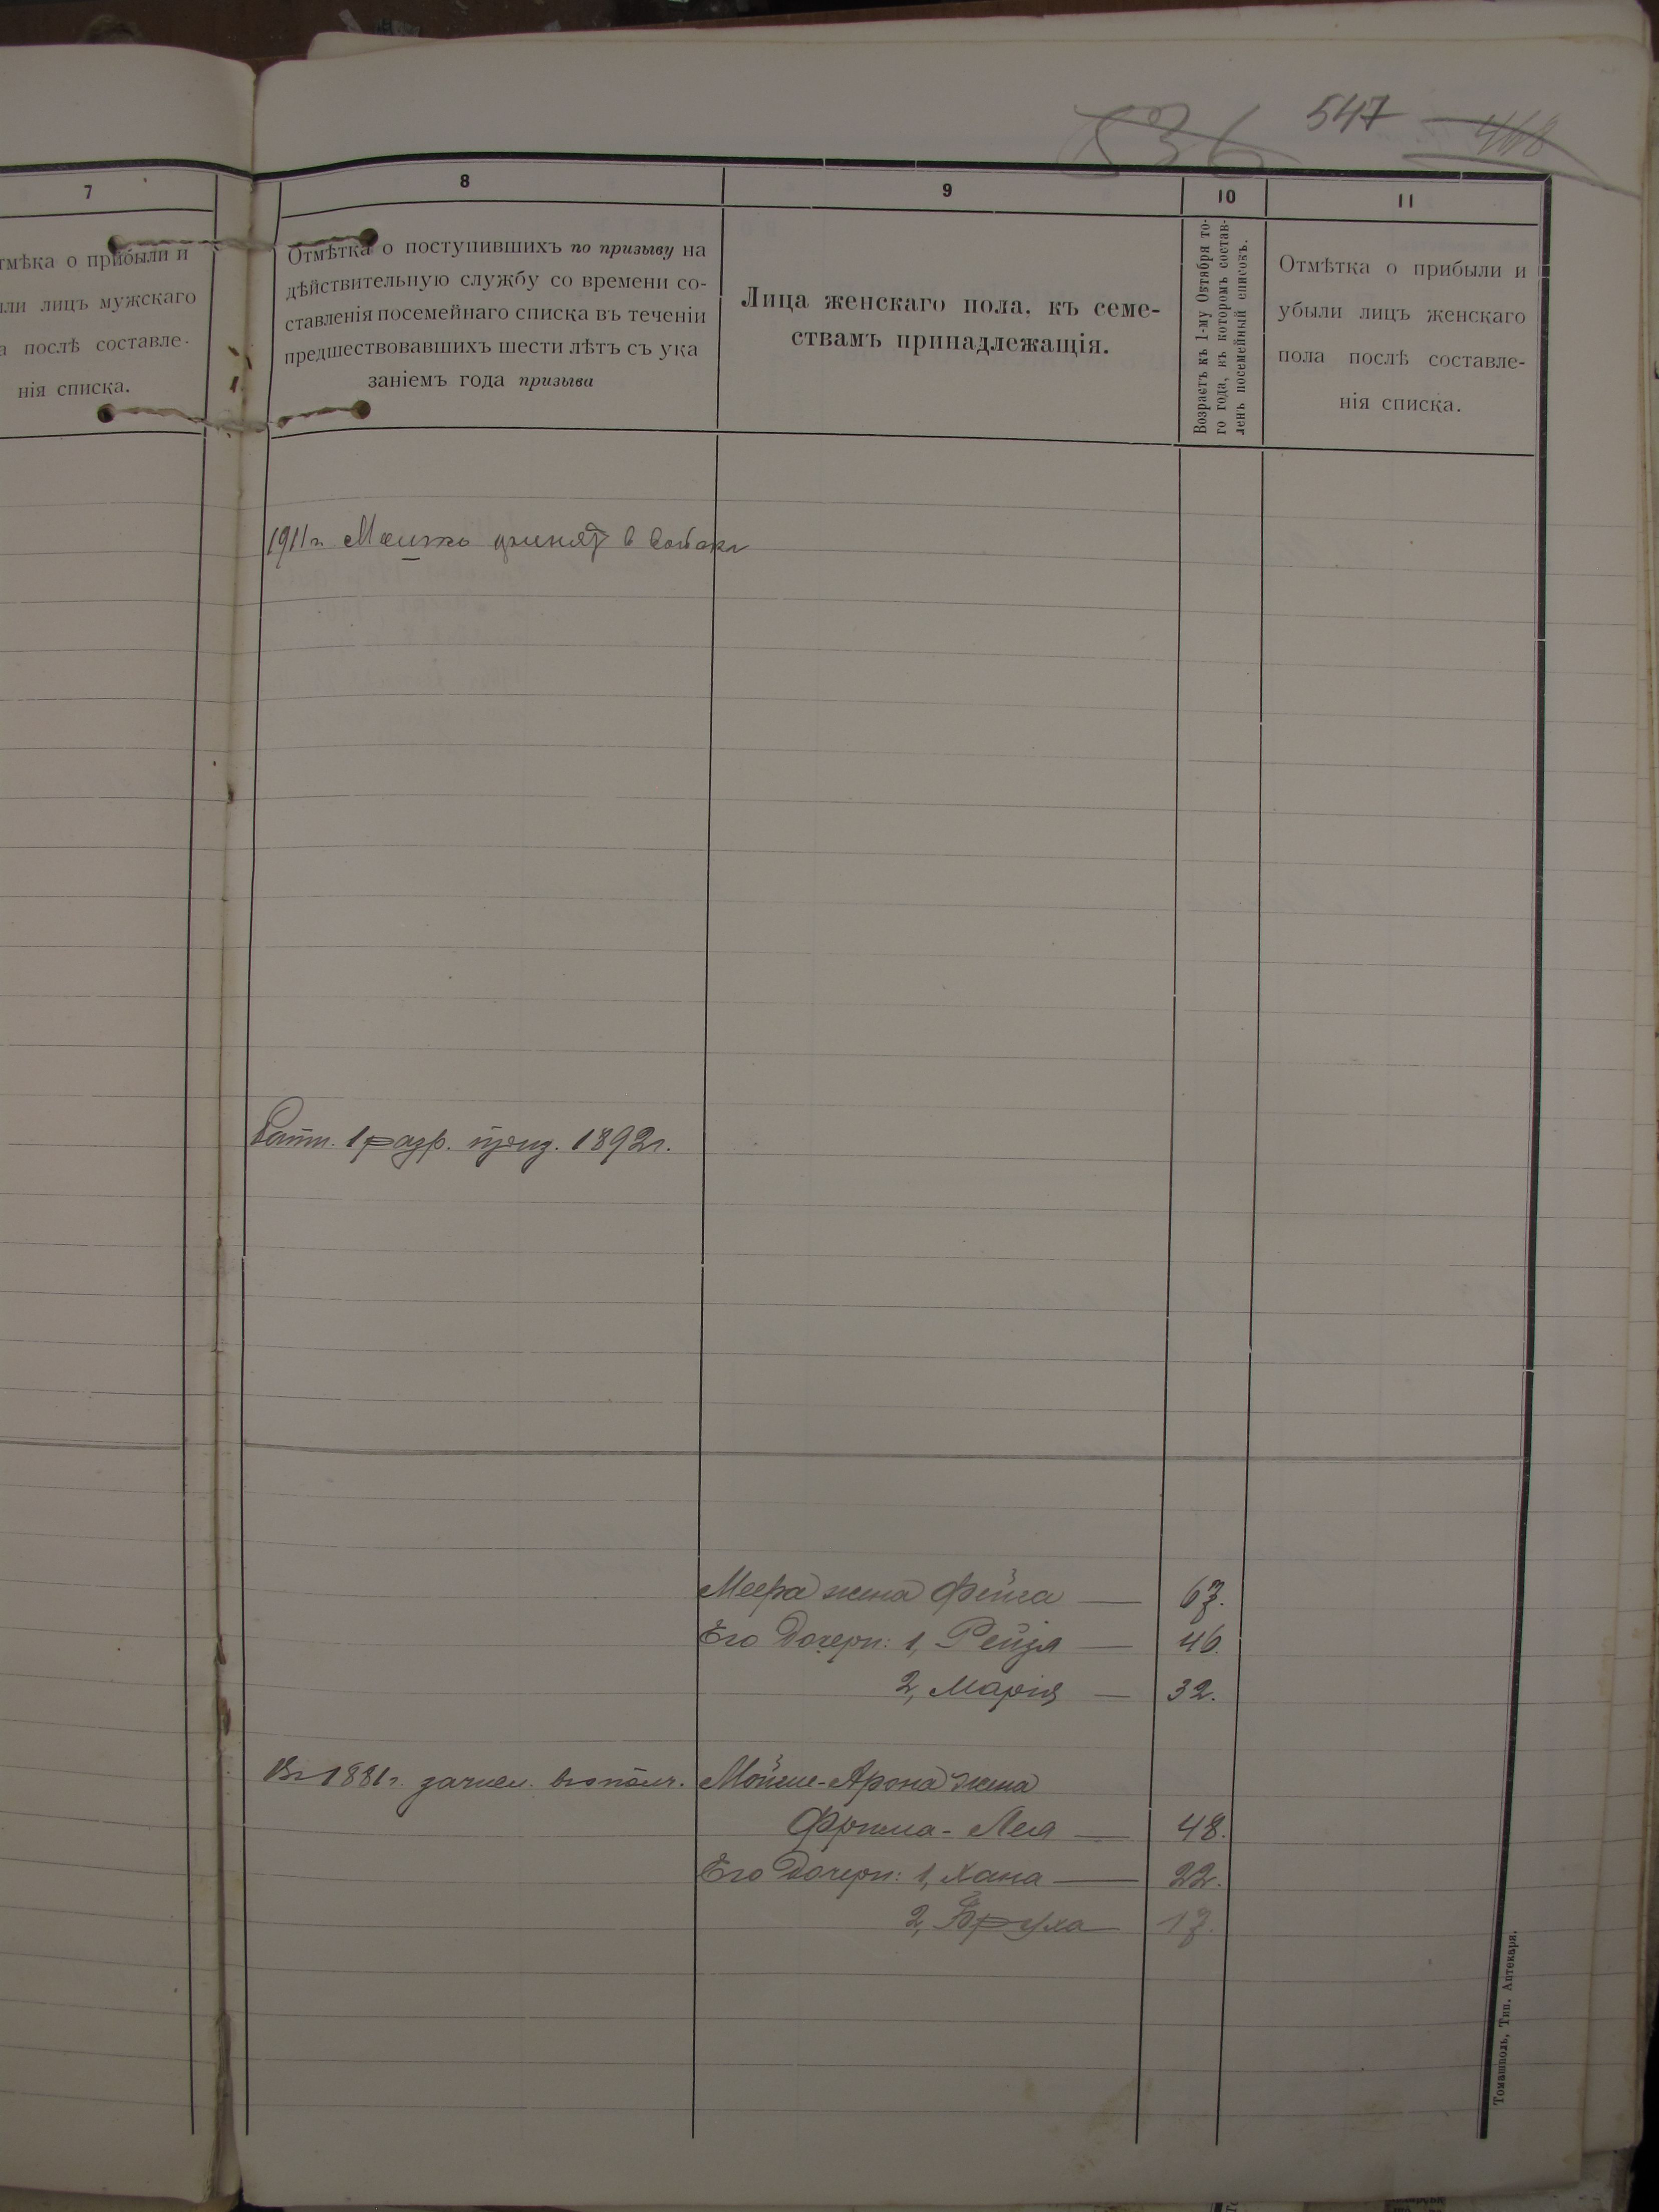 536 547 468
7 8 9 10 11
тмѣка о прибыли и
ли лицъ мужскаго
а послѣ составле-
нія списка.
Отмѣтка о поступившихъ по призыву на
дѣйствительную службу со времени со-
ставленія посемейнаго списка въ теченіи
предшествовавшихъ шести лѣтъ съ ука
заніемъ года призыва
Лица женскаго пола, къ семе-
ствамъ принадлежащія.
Возрастъ къ 1-му Октября то-
го года, къ которомъ состав-
ленъ посемейный списокъ.
Отмѣтка о прибыли и
убыли лицъ женскаго
пола послѣ составле-
нія списка.
1911 г. принят в
Ратн. 1 разр. приз. 1892 г.
Меера жена Фейга — 67.
Его дочери: 1, Рейзя — 46.
2, Марія — 32.
Въ 1881 г. зачисл. въ ополч. Мойше-Арона жена
Фрима-Лея — 48.
Его дочери: 1, Хана — 22.
2, Бруха 17.
Томашполь, Тип. Аптекаря.